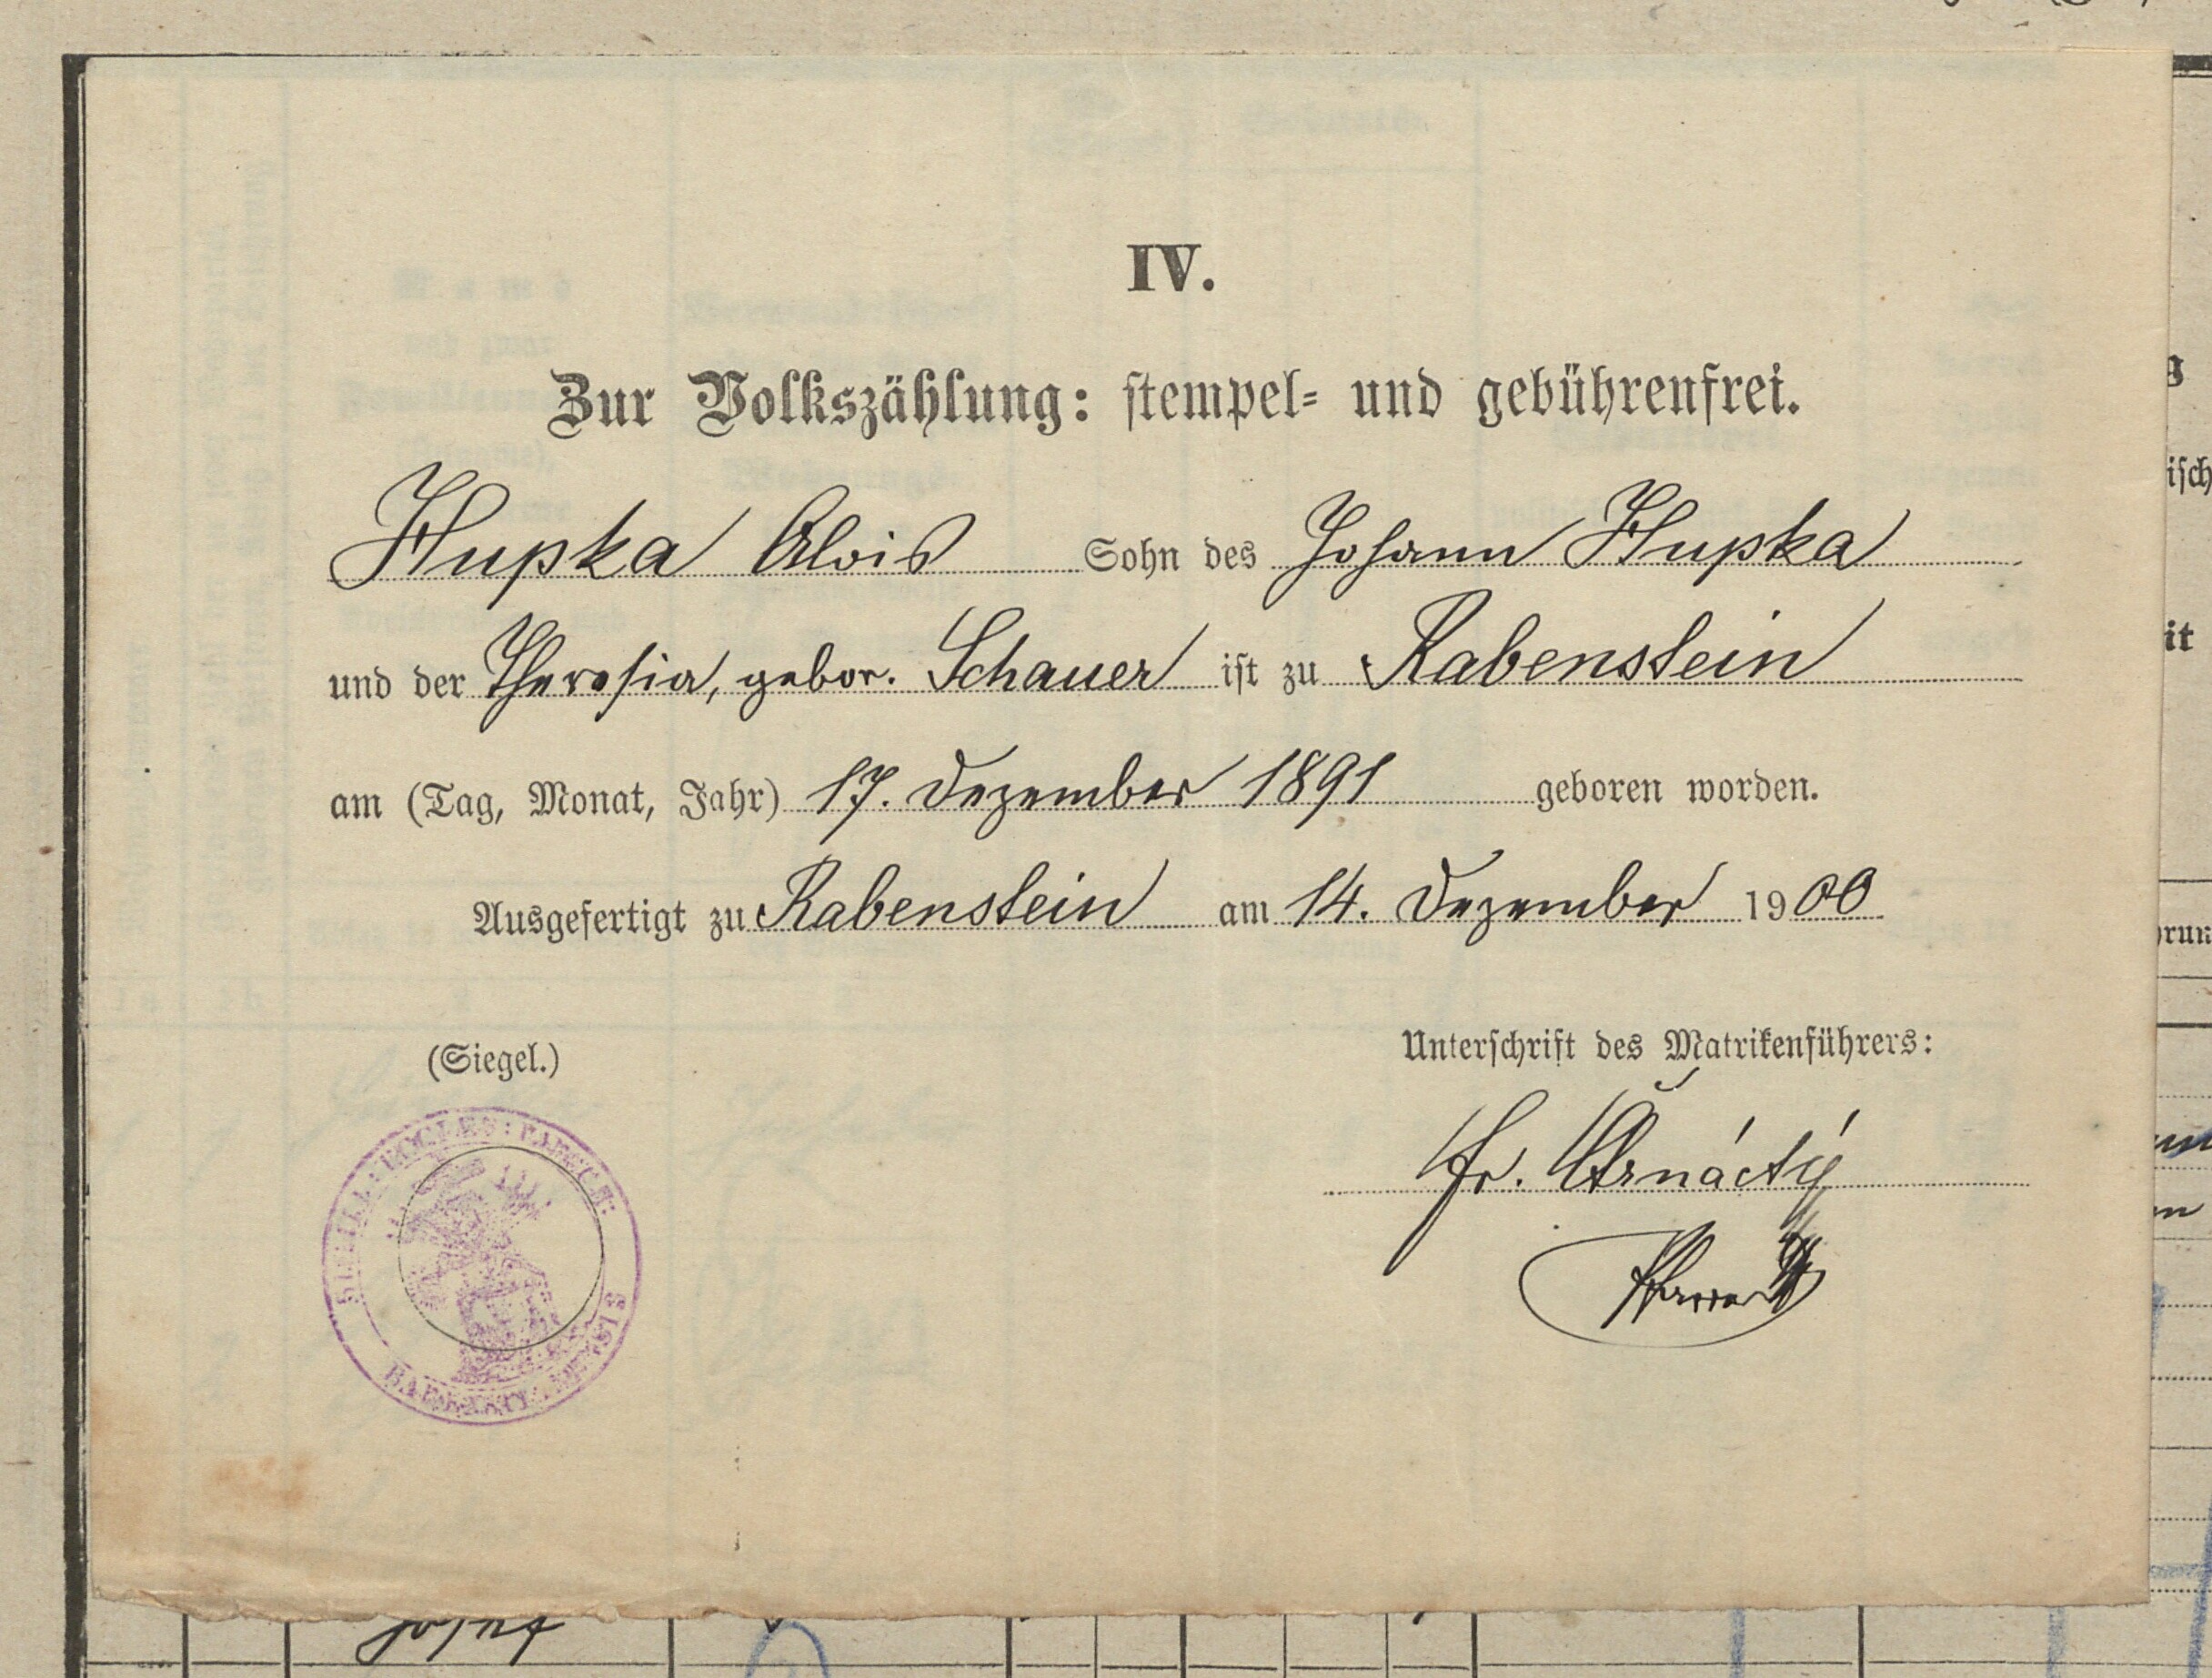 IV.
Zur Volkszählung: stempel- und gebührenfrei.
Hupka Alois Sohn des Johann Hupka
und der Theresia, gebor. Schauer ist zu Rabenstein
am (Tag, Monat, Jahr) 17. Dezember 1891 geboren worden.
Ausgefertigt zu Rabenstein am 14. Dezember 1900
(Siegel.)
Unterschrift des Matrikenführers:
Fr.
Pfarrer